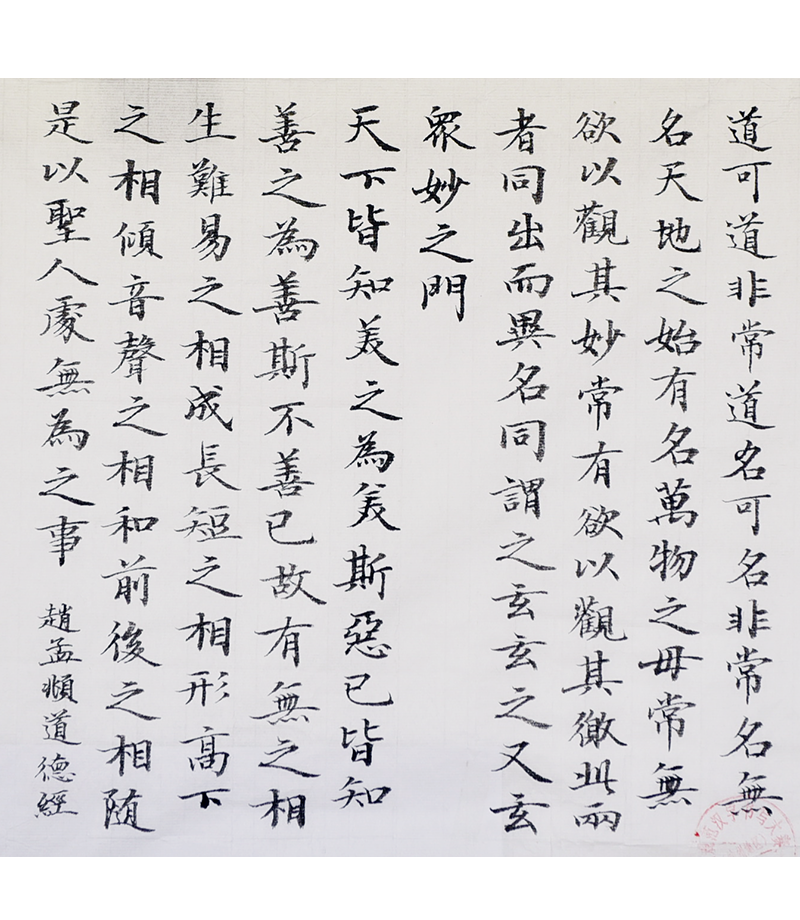 道可道非常道名可名非常名無
名天地之始有名萬物之母常無
欲以觀其妙常有欲以觀其徼此兩
者同出而異名同謂之玄玄之又玄
眾妙之門
天下皆知美之為美斯惡已皆知
善之為善斯不善已故有無之相
生難易之相成長短之相形高下
之相傾音聲之相和前後之相随
是以聖人處無為之事 趙孟頫道德經